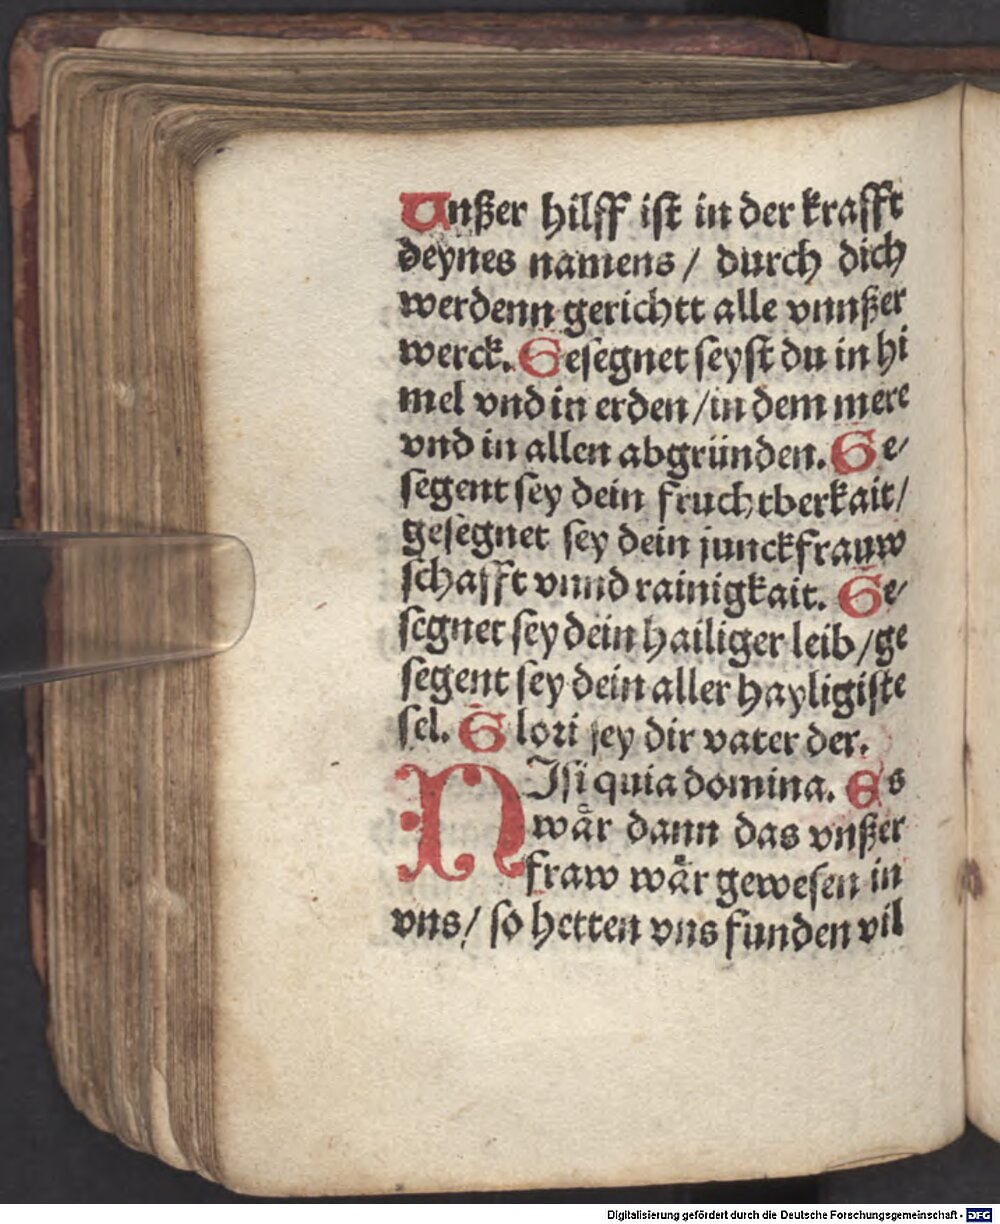 Unßer hilff ist in der krafft
deynes namens / durch dich
werdenn gerichtt alle vnnßer
werck. Gesegnet seyst du in hi
mel vnd in erden / in dem mere
vnd in allen abgründen. Ge-
segent sey dein fruchtberkait /
gesegnet sey dein junckfrauw
schafft vnnd rainigkait. Ge-
segnet sey dein hailiger leib / ge
segent sey dein aller hayligiste
sel. Glori sey dir vater der.
NIsi quia domina. Es
waͤr dann das vnßer
fraw waͤr gewesen in
vns / so hetten vns funden vil
Digitalisierung gefördert durch die Deutsche Forschungsgemeinschaft - DFG